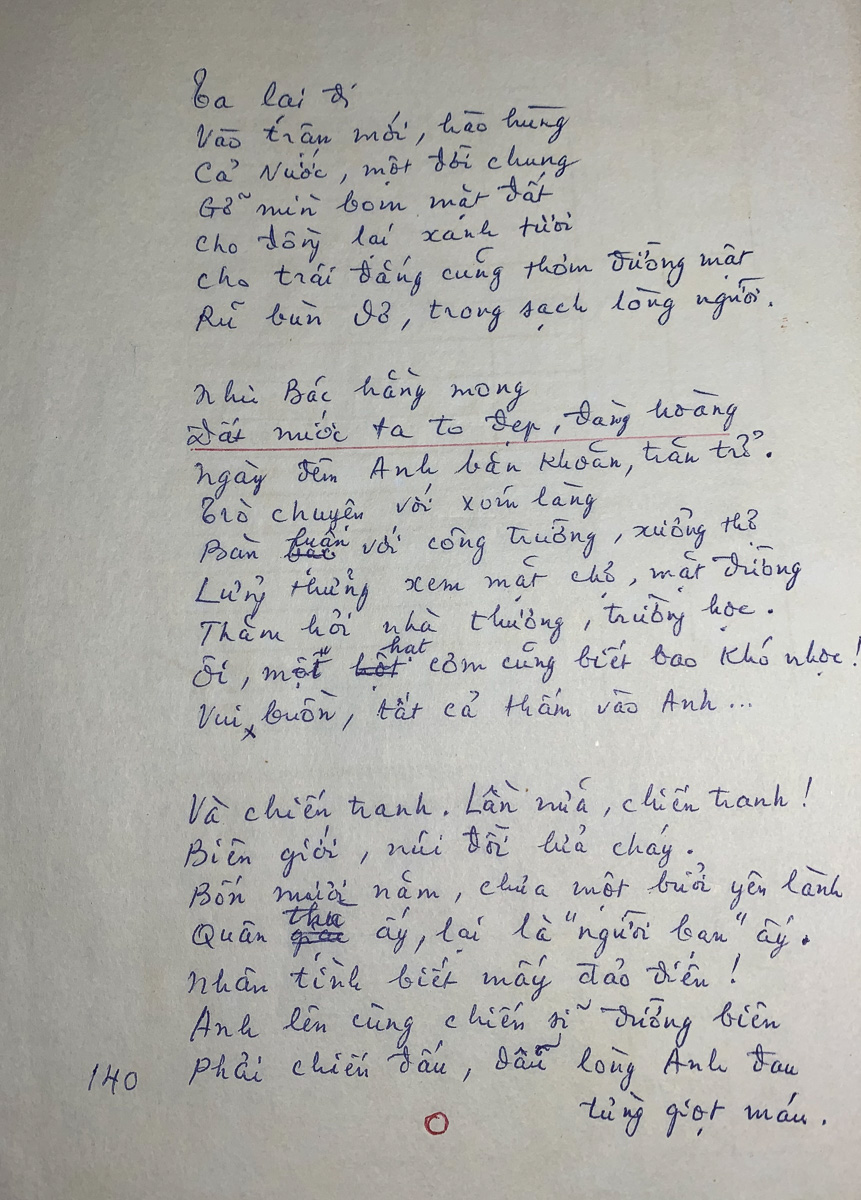 Ta lại đi
Vào trận mới, hào hùng
Cả Nước, một đời chung
Gỡ mìn bom mặt đất
Cho đồng lại xanh tươi
Cho trái đắng cũng thơm đường mật
Rũ bùn dơ, trong sạch lòng người.
Như Bác hằng mong
Đất nước ta to đẹp, đàng hoàng
Ngày đêm Anh băn khoăn, trăn trở.
Trò chuyện với xóm làng
Bàn luận với công trường, xưởng thợ
Lững thững xem mặt chợ, mặt đường
Thăm hỏi nhà thương, trường học.
Ôi, một hạt cơm cũng biết bao khó nhọc!
Vui, buồn, tất cả thấm vào Anh...
Và chiến tranh. Lần nữa, chiến tranh!
Biên giới, núi đồi lửa cháy.
Bốn mươi năm, chưa một buổi yên lành
Quân thù ấy, lại là "người bạn" ấy.
Nhân tình biết mấy đảo điên!
Anh lên cùng chiến sĩ đường biên
Phải chiến đấu, dẫu lòng Anh đau
từng giọt máu.
140